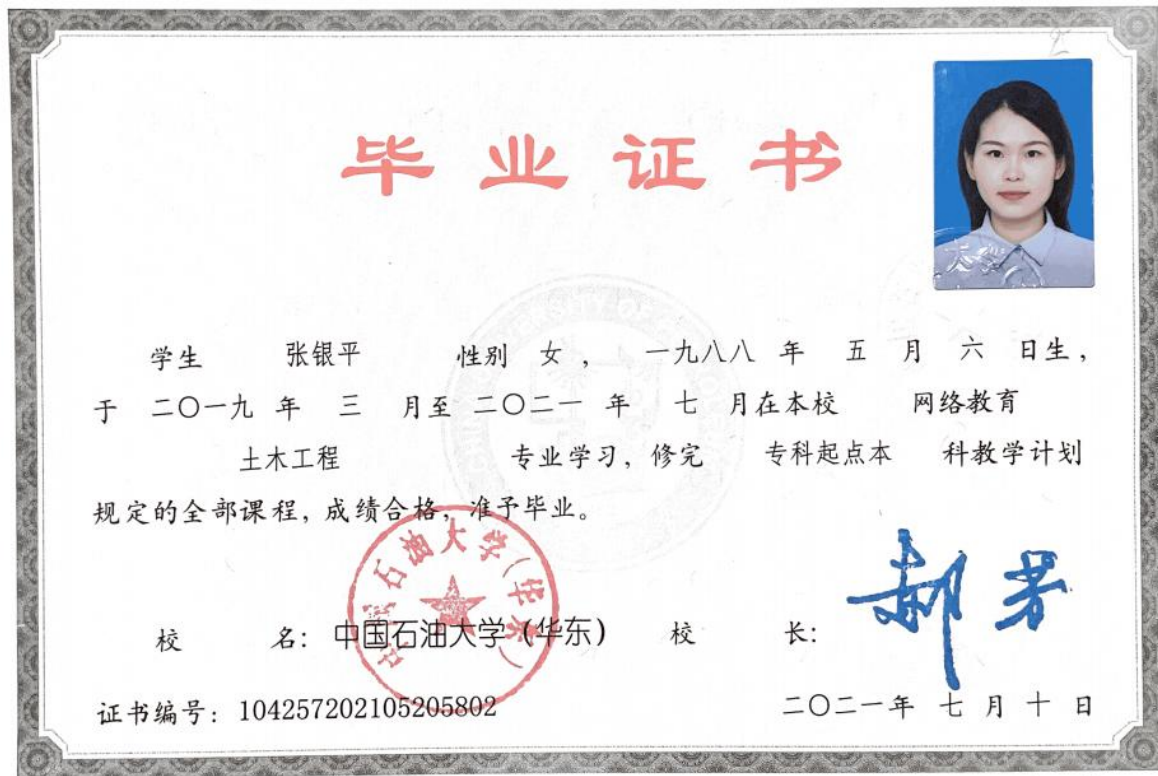 毕业证书
学生 张银平 性别 女 , 一九八八 年 五 月 六 日生,
于 二〇一九 年 三 月至 二〇二一 年 七 月在本校 网络教育
土木工程 专业学习, 修完 专科起点本 科教学计划
规定的全部课程, 成绩合格, 准予毕业。
中国石油大学(华东)
校 名: 中国石油大学（华东） 校 长: 郝芳
证书编号: 104257202105205802 二〇二一年 七 月 十 日